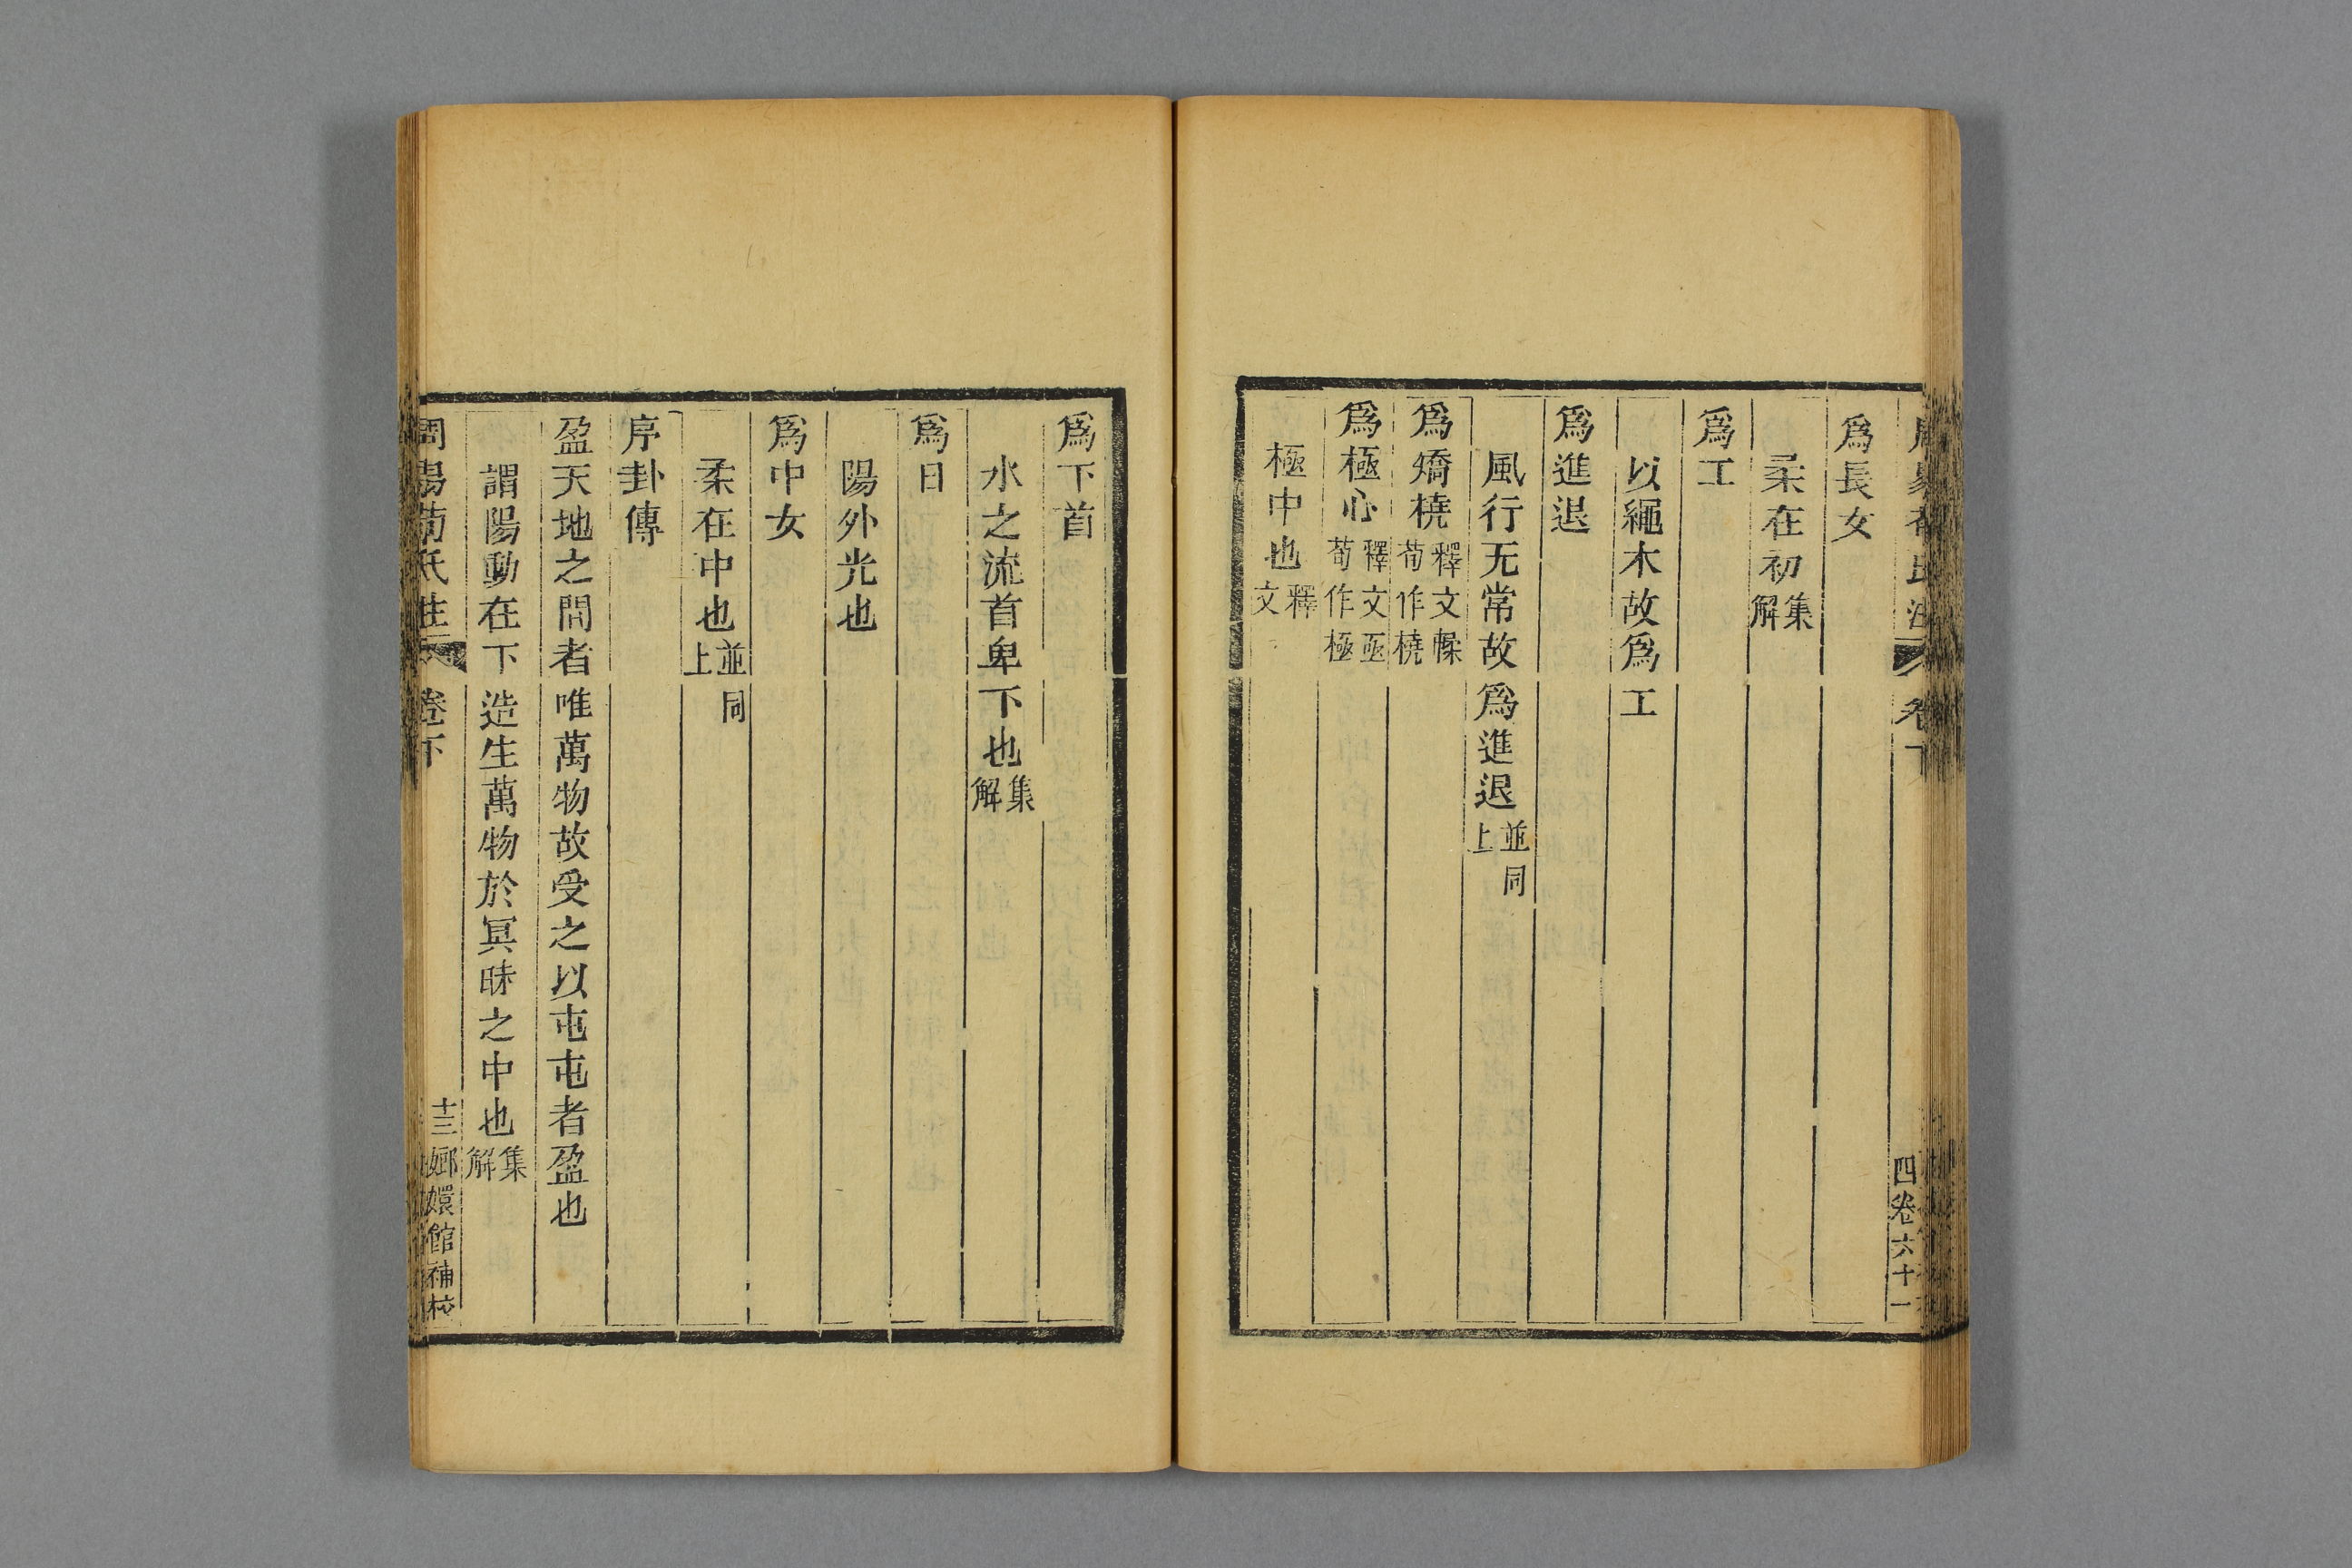 爲長女
柔在初集解
爲工
以繩木故爲工
爲進退
風行无常故爲進退並同上
爲矯橈釋文輮荀作橈
爲極心釋文亟荀作極
極中也釋文
四卷六十一
爲下首
水之流首卑下也集解
爲日
陽外光也
爲中女
柔在中也並同上
序卦傳
盈天地之閒者唯萬物故受之以屯屯者盈也
謂陽動在下造生萬物於冥昧之中也集解
周易荀氏注 卷下 十三 嫏嬛館補校